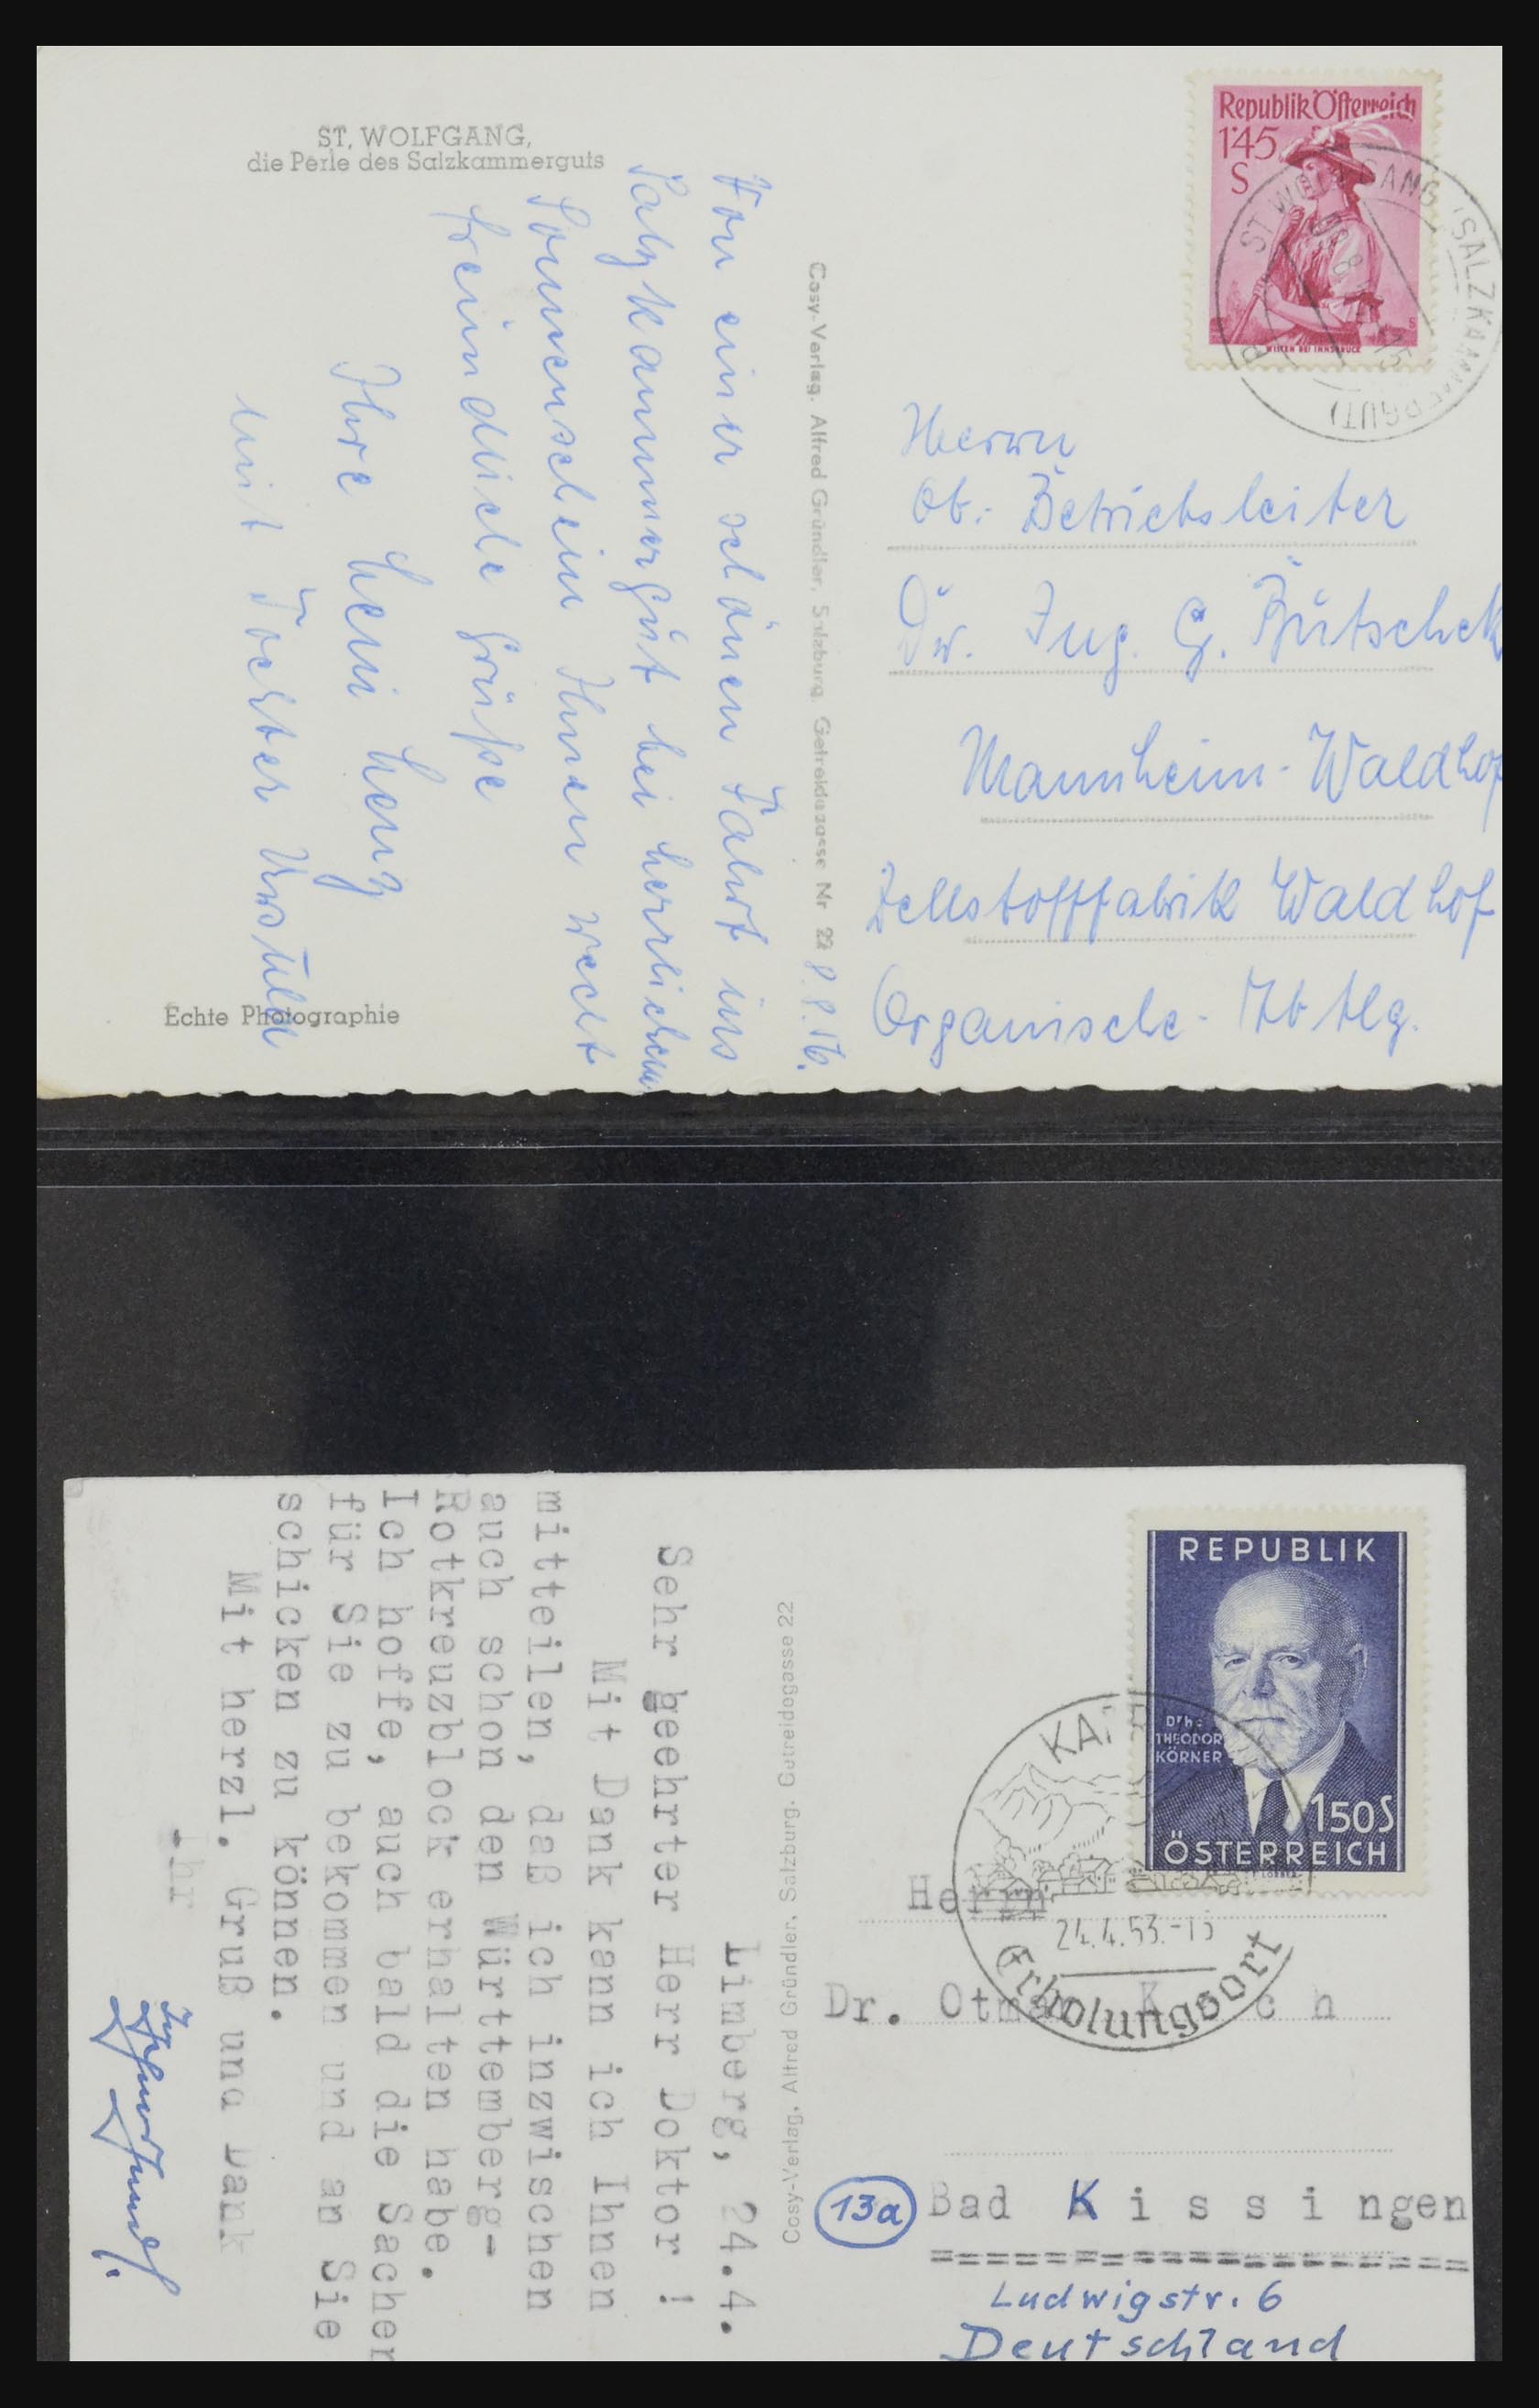 ST. WOLFGANG,
die Perle des Salzkammerguts
Von einer schönen Fahrt ins
Salzkammergut bei herrlichem
Sonnenschein Ihnen recht
freundliche Grüße
Ihre
mit Tochter
Echte Photographie
Cosy-Verlag, Alfred Gründler, Salzburg, Getreidegasse Nr 22
Republik Österreich
1'45
S
WILTEN BEI INNSBRUCK
ST WOLFGANG (SALZKAMMERGUT)
Herrn
Ob. Betriebsleiter
Dr. Ing. G.
Mannheim-Waldhof
Zellstofffabrik Waldhof
Organische-Abtlg.
Limberg, 24.4.
Sehr geehrter Herr Doktor !
Mit Dank kann ich Ihnen
mitteilen, daß ich inzwischen
auch schon den Württemberg-
Rotkreuzblock erhalten habe.
Ich hoffe, auch bald die Sachen
für Sie zu bekommen und an Sie
schicken zu können.
Mit herzl. Gruß und Dank
Ihr
Cosy-Verlag, Alfred Gründler, Salzburg, Getreidegasse 22
REPUBLIK
Dr h c
THEODOR
KÖRNER
150S
ÖSTERREICH
24.4.53.-15
Erholungsort
Herrn
Dr. Otmar
13a
Bad Kissingen
Ludwigstr. 6
Deutschland